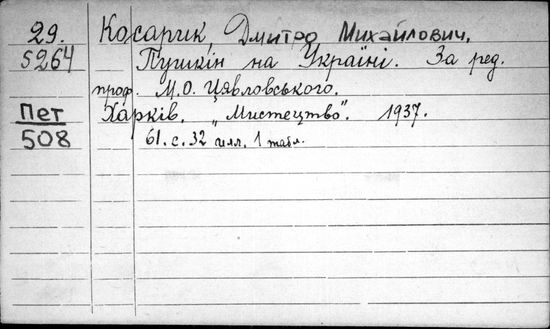 29. Косарик, Дмитро Михайлович.
5264 Пушкін на Україні. За ред.
проф. М.О. Цявловського.
Пет Харків. „Мистецтво". 1937.
508 61.с.32 илл. 1 табл.